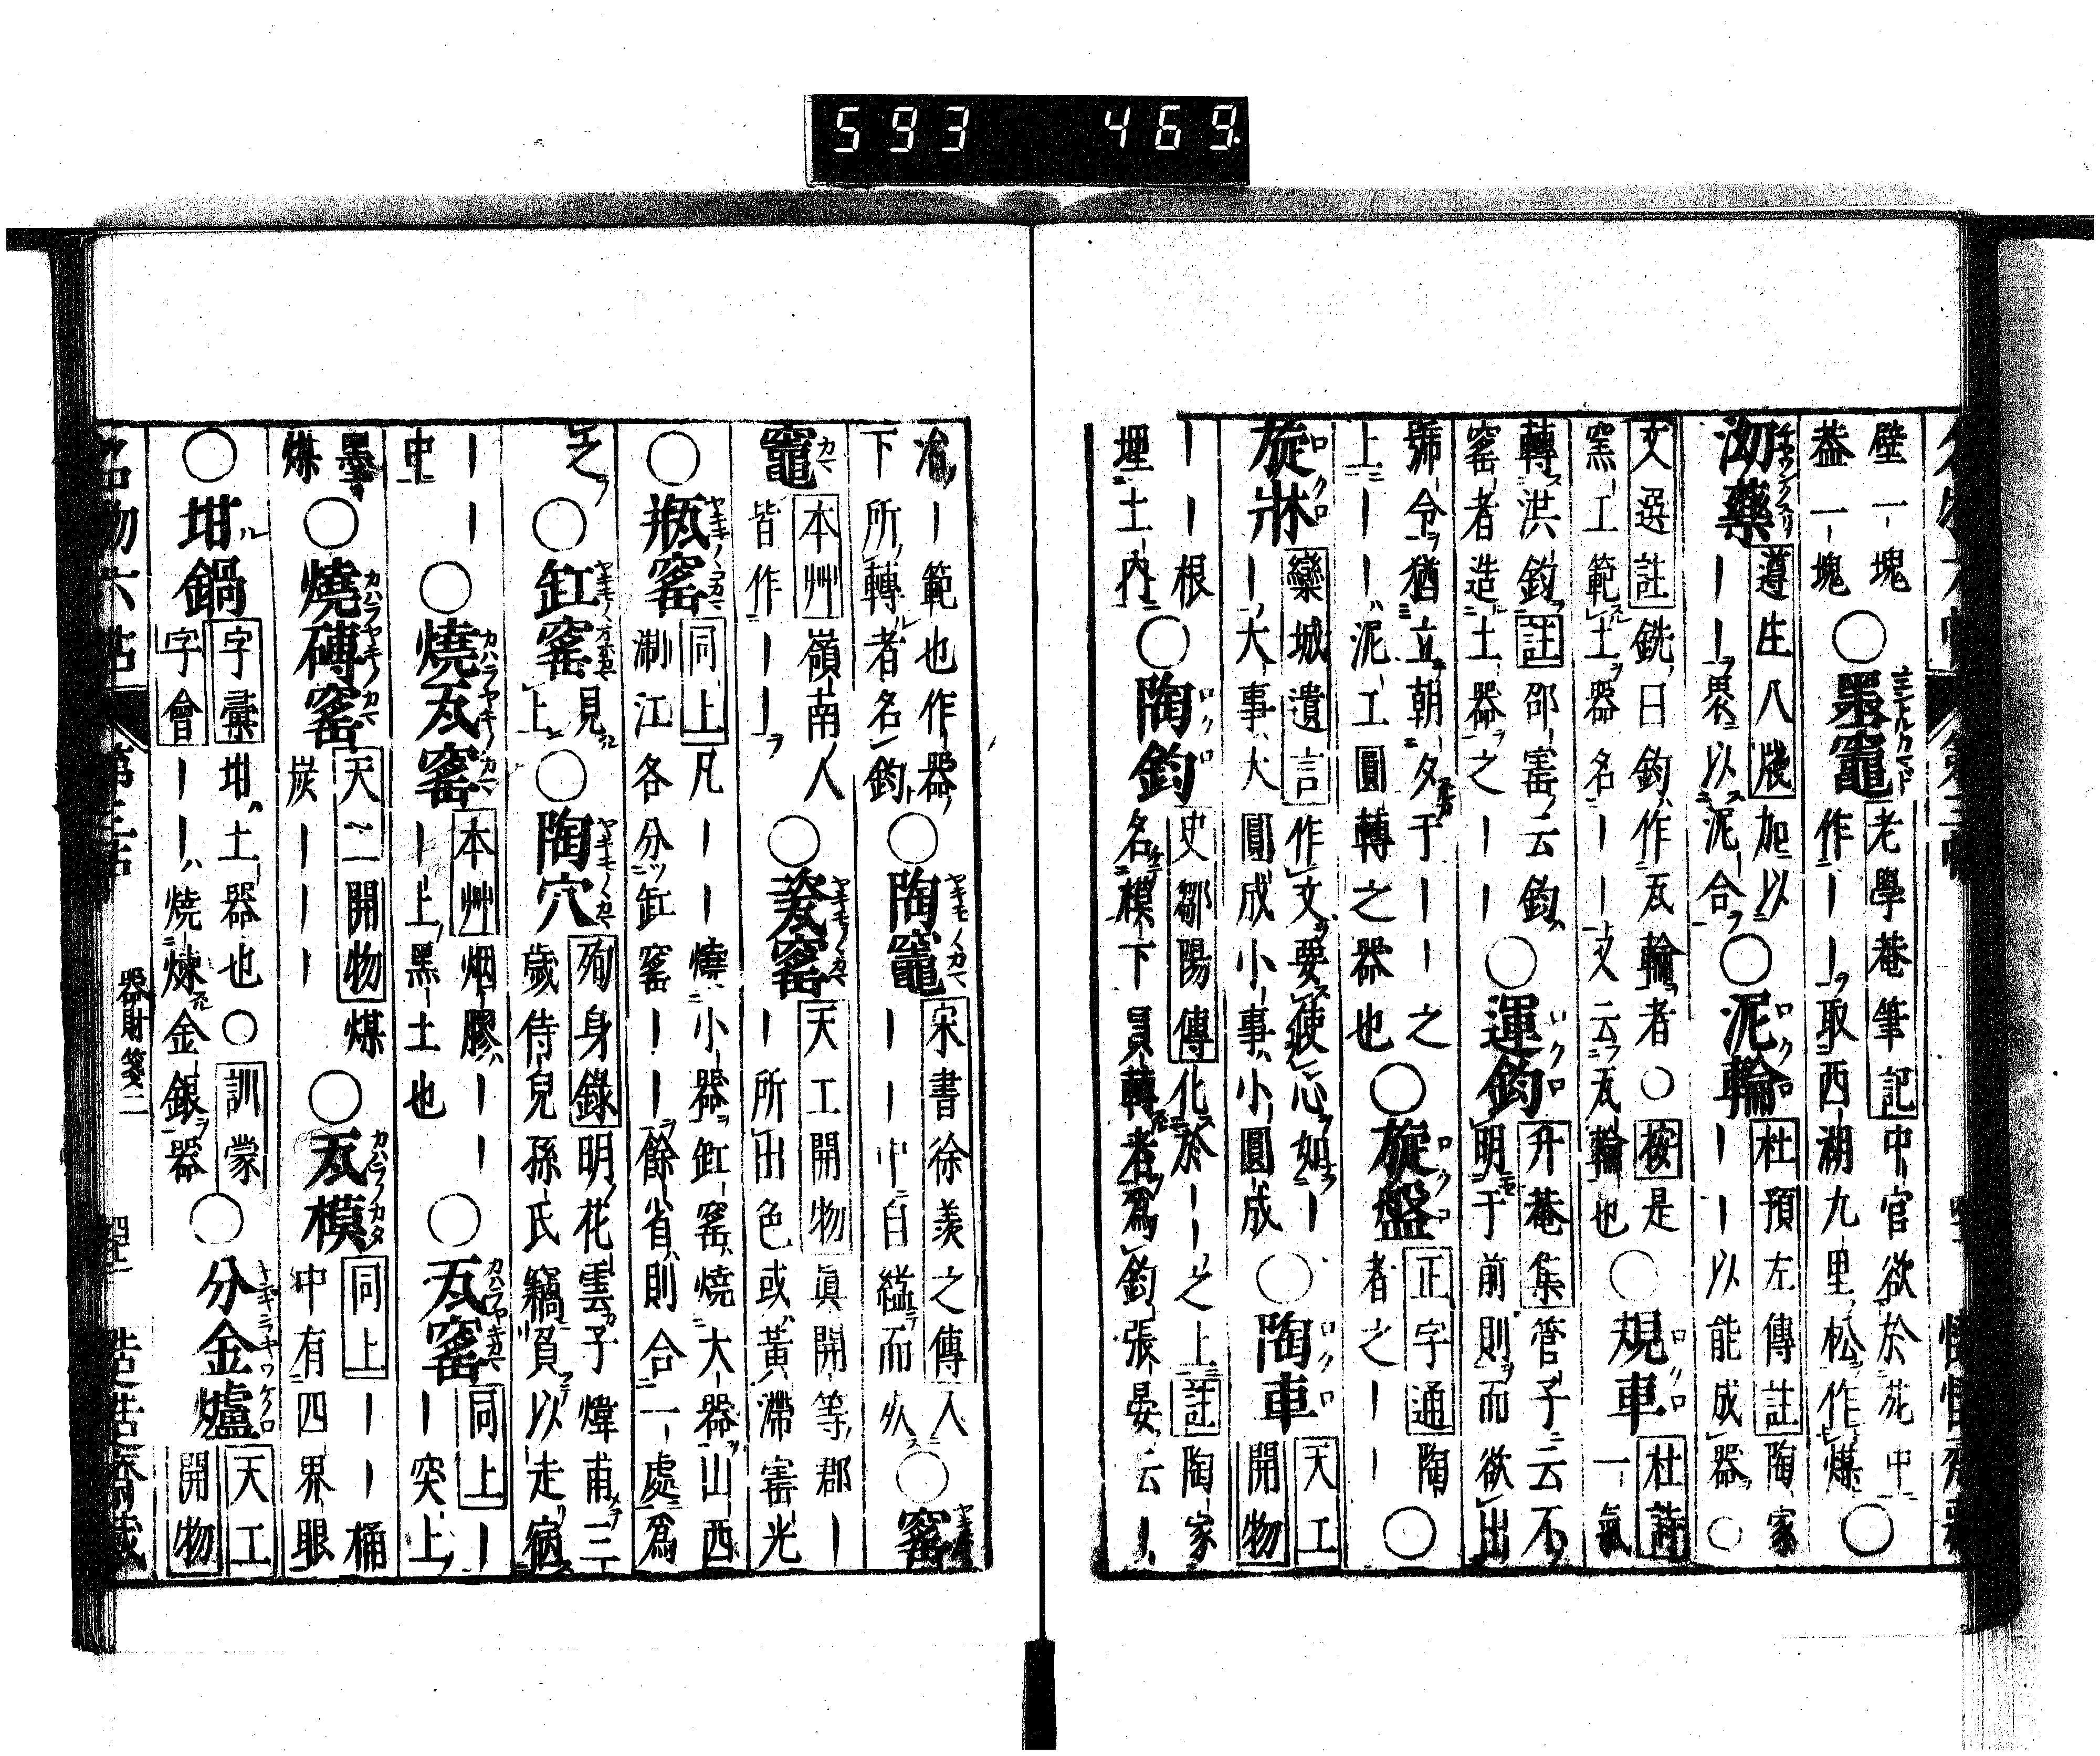 593 469.
壁一塊
葢一塊
○墨竈 老學菴筆記 中官欲於苑中
作――取西湖九里松作煤 ○
泑藥 遵生八牋 加以
――界以泥合
○泥輪 杜預左傳註 陶家
――以能成器○
文選註 銑曰鈞作瓦輪者○按是
窯工範土器名――又云瓦輪也
○規車 杜詩
一氣
轉洪鈞註邵窰云鈞
窰者造土器之――
○運鈞 升菴集 管子云不
明于前則而欲出
號令猶立朝夕于――之
上――――泥工圓轉之器也
○旋盤 正字通 陶
者之―― ○
旋牀 欒城遺言 作文要使心如―
―大事大圓成小事小圓成
○陶車 天工
開物
――根
埋土內
○陶鈞 史鄒陽傳 化於――之上註陶家
名模下員轉者爲鈞張晏云―
―範也作器
下所轉者名鈞
○陶竈 宋書徐羨之傳 入
――中自縊而死
○窰
竈 本艸 嶺南人
皆作――
○瓷窰 天工開物 眞開等郡―
―所出色或黃滯窰光
○瓶窰 同上 凡―――燒小器缸窰燒大器山西
淛江各分缸窰――餘省則合一處爲
之
○缸窰 見
上
○陶穴 殉身錄 明花雲子煒甫三
歲侍兒孫氏竊負以走宿
――
中
○燒瓦窰 本艸 烟膠――
―上黑土也
○瓦窰 同上―
―突上
墨
煤
○燒磚窰 天工開物 煤
炭―――
○瓦模 同上 ――桶
中有四界眼
○坩鍋 字彙 坩土器也○訓蒙
字會 ――燒煉金銀器
○分金爐 天工
開物
名物六帖 第三帖 器財箋二